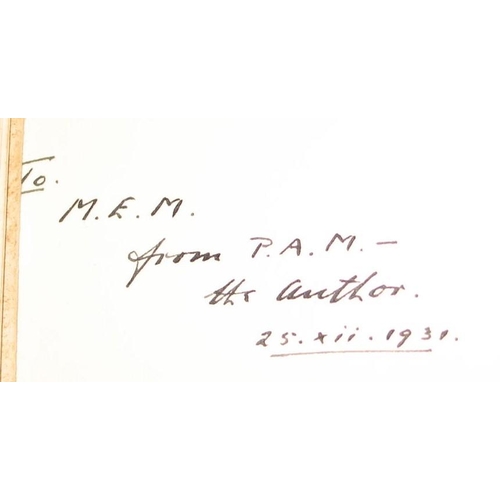 To.
M.E.M.
from P.A.M. –
the author.
25.xii.1931.